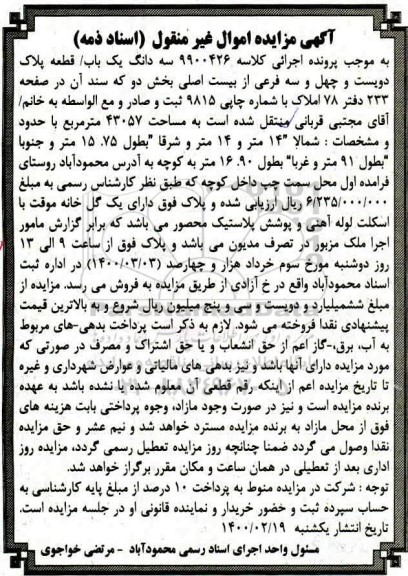 آگهی مزایده اموال غیر منقول (اسناد ذمه)
به موجب پرونده اجرائی کلاسه ۹۹۰۰۴۲۶ سه دانگ یک باب/ قطعه پلاک
دویست و چهل و سه فرعی از بیست اصلی بخش دو که سند آن در صفحه
۲۳۳ دفتر ۷۸ املاک با شماره چاپی ۹۸۱۵ ثبت و صادر و مع الواسطه به خانم/
آقای مجتبی قربانی منتقل شده است به مساحت ۴۳۰۵۷ مترمربع با حدود
و مشخصات : شمالا "۱۴ متر و ۱۴ متر و شرقا "بطول ۷۵. ۱۵ متر و جنوبا
"بطول ۹۱ متر و غربا" بطول ۹۰. ۱۶ متر به کوچه به آدرس محمودآباد روستای
فرامده اول محل سمت چپ داخل کوچه که طبق نظر کارشناس رسمی به مبلغ
۶/۲۳۵/۰۰۰/۰۰۰ ریال ارزیابی شده و پلاک فوق دارای یک گل خانه موقت با
اسکلت لوله آهنی و پوشش پلاستیک محصور می باشد که برابر گزارش مامور
اجرا ملک مزبور در تصرف مدیون می باشد و پلاک فوق از ساعت ۹ الی ۱۳
روز دوشنبه مورخ سوم خرداد هزار و چهارصد (۱۴۰۰/۰۳/۰۳) در اداره ثبت
اسناد محمودآباد واقع در خ آزادی از طریق مزایده به فروش می رسد. مزایده از
مبلغ ششمیلیارد و دویست و سی و پنج میلیون ریال شروع و به بالاترین قیمت
پیشنهادی نقدا فروخته می شود. لازم به ذکر است پرداخت بدهی-های مربوط
به آب، برق،-گاز اعم از حق انشعاب و یا حق اشتراک و مصرف در صورتی که
مورد مزایده دارای آنها باشد و نیز بدهی های مالیاتی و عوارض شهرداری و غیره
تا تاریخ مزایده اعم از اینکه رقم قطعی آن معلوم شده یا نشده باشد به عهده
برنده مزایده است و نیز در صورت وجود مازاد، وجوه پرداختی بابت هزینه های
فوق از محل مازاد به برنده مزایده مسترد خواهد شد و نیم عشر و حق مزایده
نقدا وصول می گردد ضمنا چنانچه روز مزایده تعطیل رسمی گردد، مزایده روز
اداری بعد از تعطیلی در همان ساعت و مکان مقرر برگزار خواهد شد.
توجه : شرکت در مزایده منوط به پرداخت ۱۰ درصد از مبلغ پایه کارشناسی به
حساب سپرده ثبت و حضور خریدار و نماینده قانونی او در جلسه مزایده است.
تاریخ انتشار یکشنبه ۱۴۰۰/۰۲/۱۹
مسئول واحد اجرای اسناد رسمی محمودآباد - مرتضی خواجوی